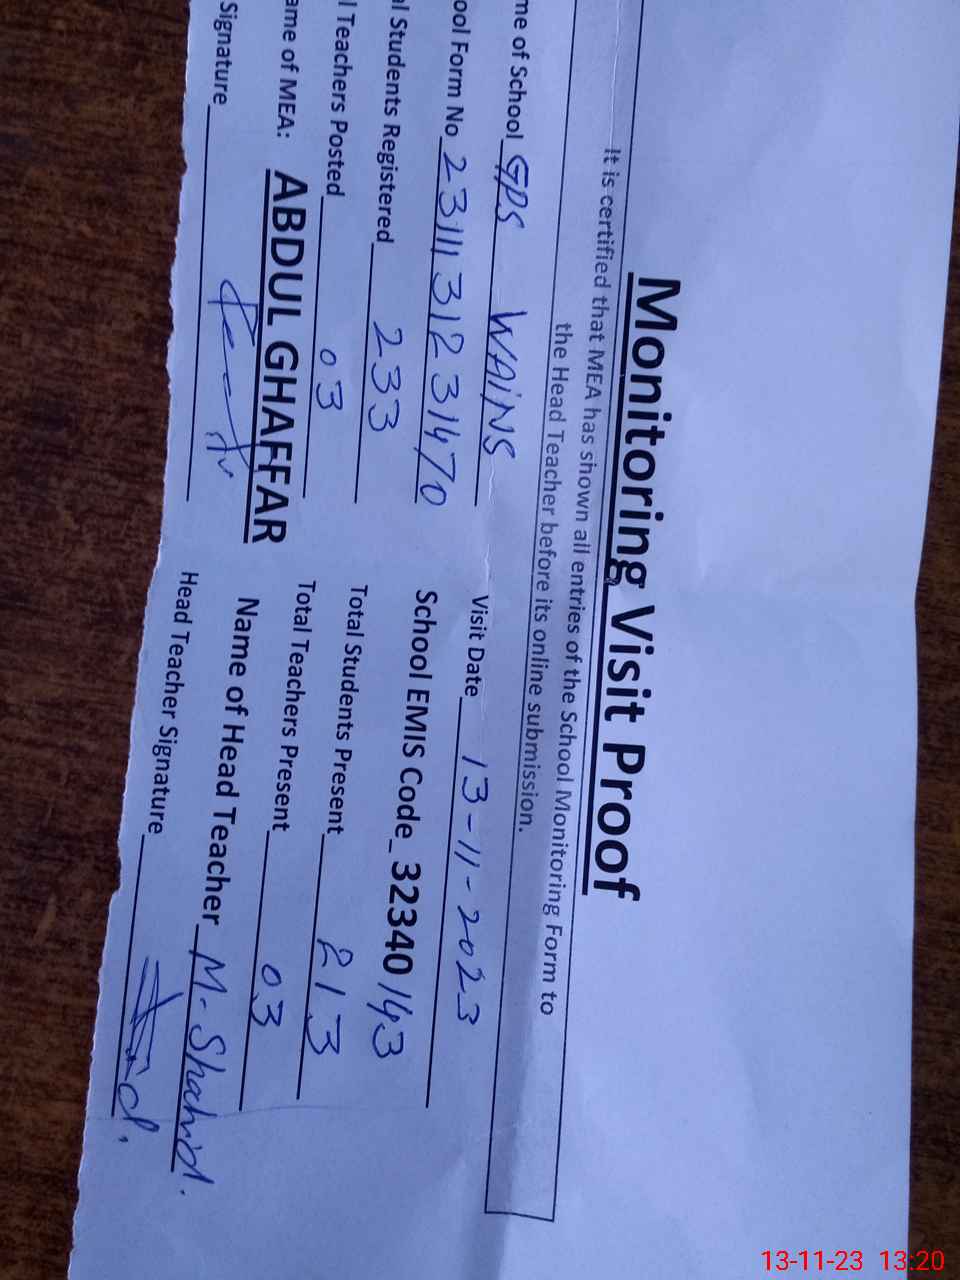 Monitoring Visit Proof
It is certified that MEA has shown all entries of the School Monitoring Form to
the Head Teacher before its online submission.
me of School GPS WAINS Visit Date 13-11-2023
ool Form No 231113123 1470 School EMIS Code 32340 143
al Students Registered 233 Total Students Present 213
l Teachers Posted 03 Total Teachers Present 03
ame of MEA: ABDUL GHAFFAR Name of Head Teacher M. Shahid.
Signature Head Teacher Signature
13-11-23 13:20